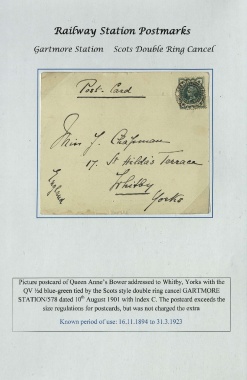 Railway Station Postmarks
Gartmore Station Scots Double Ring Cancel
Post-Card
Miss J. Chapman
17. St Hilda's Terrace
Whitby
Yorks
England
Picture postcard of Queen Anne's Bower addressed to Whitby, Yorks with the
QV ½d blue-green tied by the Scots style double ring cancel GARTMORE
STATION/578 dated 10th August 1901 with index C. The postcard exceeds the
size regulations for postcards, but was not charged the extra
Known period of use: 16.11.1894 to 31.3.1923